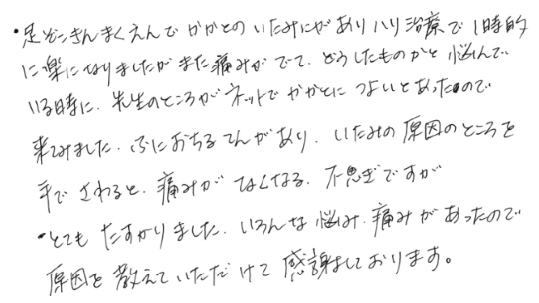 ・足ぞこきんまくえんでかかとのいたみにがありハリ治療で1時的
に楽になりましたがまた痛みがでて、どうしたものかと悩んで
いる時に、先生のところがネットでかかとにつよいとあったので
来てみました、ふにおちるてんがあり、いたみの原因のところを
手でさわると、痛みがなくなる、不思ぎですが
・とてもたすかりました、いろんな悩み、痛みがあったので
原因を教えていただけて感謝しております。